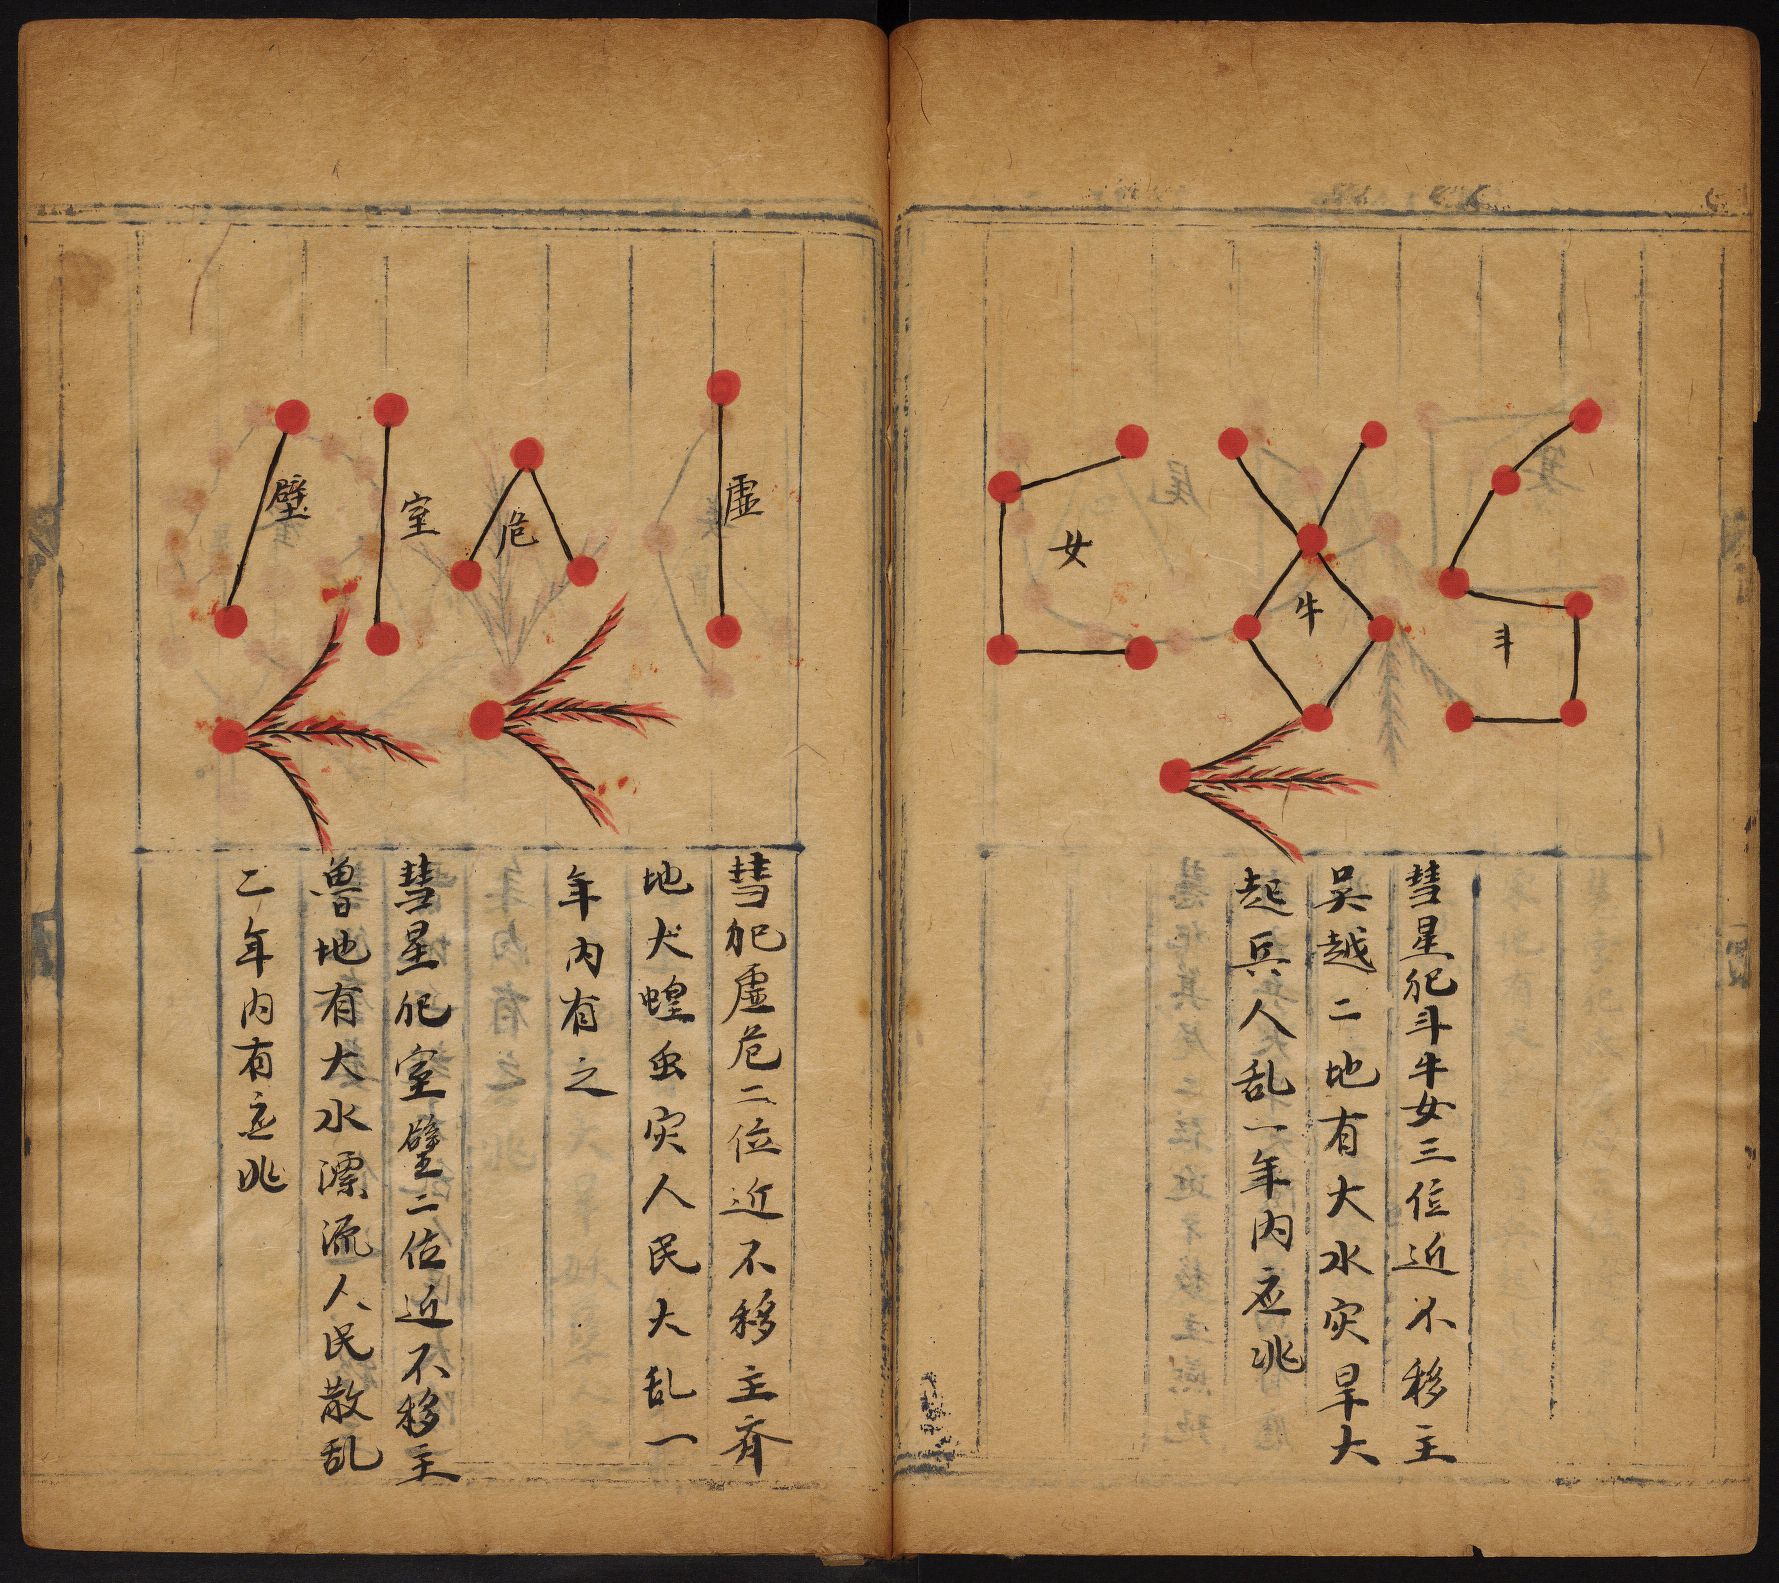 斗
牛
女
彗星犯斗牛女三位近不移主
吳越二地有大水灾旱大
起兵人乱一年内应兆
虚
危
室
壁
彗犯虚危二位近不移主齐
地犬蝗虫灾人民大乱一
年内有之
彗星犯室壁二位近不移主
魯地有大水漂流人民散乱
二年内有应兆